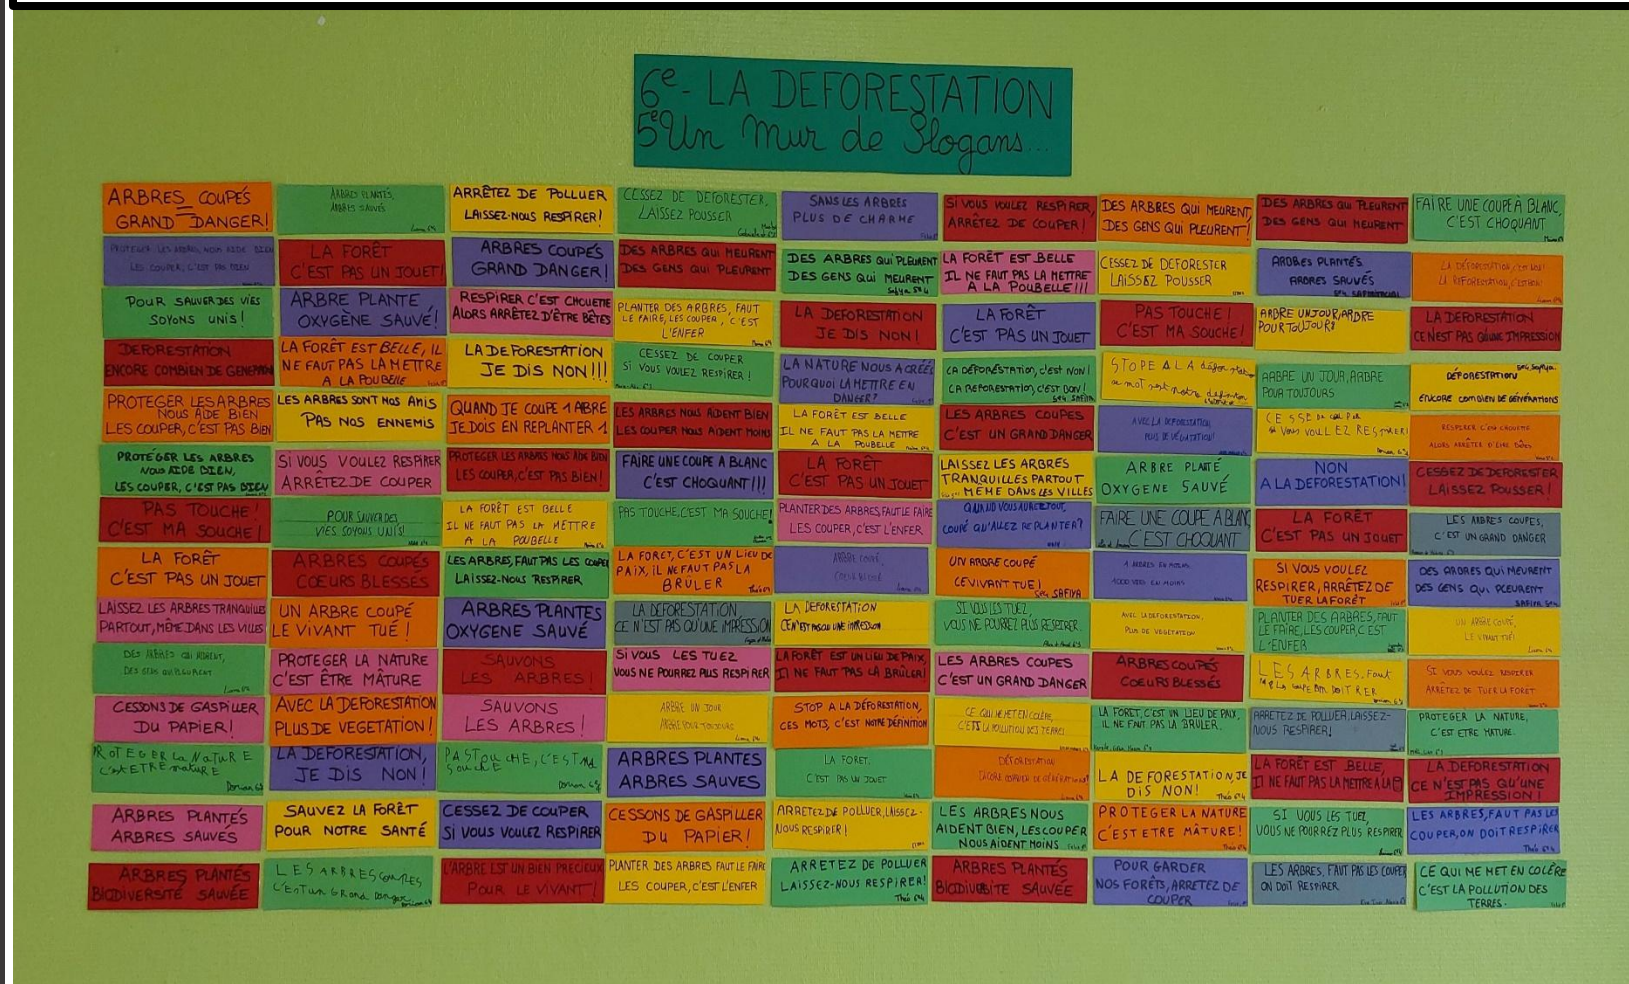 6e - LA DEFORESTATION
5e Un Mur de Slogans...
ARBRES COUPÉS
GRAND DANGER!
ARBRES PLANTÉS,
ARBRES SAUVÉS
ARRÊTEZ DE POLLUER
LAISSEZ-NOUS RESPIRER!
CESSEZ DE DEFORESTER,
LAISSEZ POUSSER
SANS LES ARBRES
PLUS DE CHARME
SI VOUS VOULEZ RESPIRER,
ARRÊTEZ DE COUPER!
DES ARBRES QUI MEURENT,
DES GENS QUI PLEURENT!
DES ARBRES QUI PLEURENT
DES GENS QUI MEURENT
FAIRE UNE COUPE À BLANC,
C'EST CHOQUANT
PROTEGER LES ARBRES, NOUS AIDE BIEN
LES COUPER, C'EST PAS BIEN
LA FORÊT
C'EST PAS UN JOUET!
ARBRES COUPÉS
GRAND DANGER!
DES ARBRES QUI MEURENT
DES GENS QUI PLEURENT
DES ARBRES QUI PLEURENT
DES GENS QUI MEURENT
LA FORÊT EST BELLE
IL NE FAUT PAS LA METTRE
A LA POUBELLE!!!
CESSEZ DE DEFORESTER
LAISSEZ POUSSER
ARBRES PLANTÉS
ARBRES SAUVÉS
LA DÉFORESTATION, C'EST NON!
LA REFORESTATION, C'EST BON!
POUR SAUVER DES VIES
SOYONS UNIS!
ARBRE PLANTE
OXYGÈNE SAUVÉ!
RESPIRER C'EST CHOUETTE
ALORS ARRÊTEZ D'ÊTRE BÊTES
PLANTER DES ARBRES, FAUT
LE FAIRE, LES COUPER, C'EST
L'ENFER
LA DEFORESTATION
JE DIS NON!
LA FORÊT
C'EST PAS UN JOUET
PAS TOUCHE!
C'EST MA SOUCHE!
ARBRE UN JOUR, ARBRE
POUR TOUJOURS
LA DEFORESTATION
CE N'EST PAS QU'UNE IMPRESSION
DEFORESTATION
ENCORE COMBIEN DE GENERATION
LA FORÊT EST BELLE, IL
NE FAUT PAS LA METTRE
A LA POUBELLE
LA DEFORESTATION
JE DIS NON!!!
CESSEZ DE COUPER
SI VOUS VOULEZ RESPIRER!
LA NATURE NOUS A CRÉÉS
POURQUOI LA METTRE EN
DANGER?
LA DÉFORESTATION, C'EST NON!
LA REFORESTATION, C'EST BON!
5e4 SAFIYA
STOPE A LA
notre definition
ARBRE UN JOUR, ARBRE
POUR TOUJOURS
DÉFORESTATION
ENCORE COMBIEN DE GÉNÉRATIONS
PROTEGER LES ARBRES
NOUS AIDE BIEN
LES COUPER, C'EST PAS BIEN
LES ARBRES SONT NOS AMIS
PAS NOS ENNEMIS
QUAND JE COUPE 1 ABRE
JE DOIS EN REPLANTER 1
LES ARBRES NOUS AIDENT BIEN
LES COUPER NOUS AIDENT MOINS
LA FORÊT EST BELLE
IL NE FAUT PAS LA METTRE
A LA POUBELLE
LES ARBRES COUPES
C'EST UN GRAND DANGER
AVEC LA DEFORESTATION
PLUS DE VÉGÉTATION!
SI VOUS VOULLEZ RESPIRER!
RESPIRER C'EST CHOUETTE
ALORS ARRÊTER D'ÊTRE BÊTES
PROTÉGER LES ARBRES
NOUS AIDE BIEN,
LES COUPER, C'EST PAS BIEN
SI VOUS VOULEZ RESPIRER
ARRÊTEZ DE COUPER
PROTEGER LES ARBRES NOUS AIDE BIEN
LES COUPER, C'EST PAS BIEN!
FAIRE UNE COUPE A BLANC
C'EST CHOQUANT!!!
LA FORÊT
C'EST PAS UN JOUET
LAISSEZ LES ARBRES
TRANQUILLES PARTOUT
MÊME DANS LES VILLES
ARBRE PLANTÉ
OXYGENE SAUVÉ
NON
A LA DEFORESTATION!
CESSEZ DE DEFORESTER
LAISSEZ POUSSER!
PAS TOUCHE!
C'EST MA SOUCHE!
POUR SAUVER DES
VIES SOYONS UNIS!
LA FORÊT EST BELLE
IL NE FAUT PAS LA METTRE
A LA POUBELLE
PAS TOUCHE, C'EST MA SOUCHE!
PLANTER DES ARBRES, FAUT LE FAIRE
LES COUPER, C'EST L'ENFER
QUAND VOUS AUREZ TOUT
COUPÉ QU'ALLEZ REPLANTER?
FAIRE UNE COUPE A BLANC
C'EST CHOQUANT
LA FORÊT
C'EST PAS UN JOUET
LES ARBRES COUPES,
C'EST UN GRAND DANGER
LA FORÊT
C'EST PAS UN JOUET
ARBRES COUPÉS
COEURS BLESSÉS
LES ARBRES, FAUT PAS LES COUPER
LAISSEZ-NOUS RESPIRER
LA FORET, C'EST UN LIEU DE
PAIX, IL NE FAUT PAS LA
BRÛLER
ARBRE COUPÉ
UN ARBRE COUPÉ
LE VIVANT TUÉ!
5e4 SAFIYA
1 ARBRES EN MOINS
1000 VIES EN MOINS
SI VOUS VOULEZ
RESPIRER, ARRÊTEZ DE
TUER LA FORÊT
DES ARBRES QUI MEURENT
DES GENS QUI PLEURENT
SAFIYA 5e4
LAISSEZ LES ARBRES TRANQUILLES
PARTOUT, MÊME DANS LES VILLES
UN ARBRE COUPÉ
LE VIVANT TUÉ!
ARBRES PLANTES
OXYGENE SAUVÉ
LA DEFORESTATION,
CE N'EST PAS QU'UNE IMPRESSION
LA DEFORESTATION
CE N'EST PAS QU'UNE IMPRESSION
SI VOUS LES TUEZ,
VOUS NE POURREZ PLUS RESPIRER.
AVEC LA DEFORESTATION,
PLUS DE VEGETATION
PLANTER DES ARBRES, FAUT
LE FAIRE, LES COUPER, C'EST
L'ENFER
UN ARBRE COUPÉ,
LE VIVANT TUÉ!
DES ARBRES QUI MEURENT,
DES GENS QUI PLEURENT
PROTEGER LA NATURE
C'EST ÊTRE MÂTURE
SAUVONS
LES ARBRES!
SI VOUS LES TUEZ
VOUS NE POURREZ PLUS RESPIRER
LA FORÊT EST UN LIEU DE PAIX,
IL NE FAUT PAS LA BRÛLER!
LES ARBRES COUPES
C'EST UN GRAND DANGER
ARBRES COUPÉS
COEURS BLESSÉS
LES ARBRES. Faut
SI VOUS VOULEZ RESPIRER
ARRÊTEZ DE TUER LA FORÊT
CESSONS DE GASPILLER
DU PAPIER!
AVEC LA DEFORESTATION
PLUS DE VEGETATION!
SAUVONS
LES ARBRES!
ARBRE UN JOUR
ARBRE POUR TOUJOURS
STOP A LA DÉFORESTATION,
CES MOTS, C'EST NOTRE DÉFINITION
CE QUI ME MET EN COLÈRE,
C'EST LA POLLUTION DES TERRES.
LA FORET, C'EST UN LIEU DE PAIX,
IL NE FAUT PAS LA BRULER.
ARRETEZ DE POLLUER, LAISSEZ-
NOUS RESPIRER!
PROTEGER LA NATURE,
C'EST ETRE MATURE.
PROTEGER La NATURE
C'est ETRE mature
LA DEFORESTATION,
JE DIS NON!
PAS TOUCHE, C'EST MA
SOUCHE
Dorian
ARBRES PLANTES
ARBRES SAUVES
LA FORET,
C'EST PAS UN JOUET
DÉFORESTATION
ENCORE COMBIEN DE GÉNÉRATIONS?
LA DEFORESTATION, JE
DIS NON!
Théo 6e4
LA FORÊT EST BELLE,
IL NE FAUT PAS LA METTRE À LA
LA DEFORESTATION
CE N'EST PAS QU'UNE
IMPRESSION!
ARBRES PLANTÉS
ARBRES SAUVÉS
SAUVEZ LA FORÊT
POUR NOTRE SANTÉ
CESSEZ DE COUPER
SI VOUS VOULEZ RESPIRER
CESSONS DE GASPILLER
DU PAPIER!
ARRETEZ DE POLLUER, LAISSEZ-
NOUS RESPIRER!
LES ARBRES NOUS
AIDENT BIEN, LES COUPER
NOUS AIDENT MOINS
PROTEGER LA NATURE
C'EST ETRE MÂTURE!
Théo 6e4
SI VOUS LES TUEZ,
VOUS NE POURREZ PLUS RESPIRER
LES ARBRES, FAUT PAS LES
COUPER, ON DOIT RESPIRER
Théo 6e4
ARBRES PLANTÉS
BIODIVERSITÉ SAUVÉE
LES ARBRES COUPES
C'EST UN GRAND Danger
L'ARBRE EST UN BIEN PRECIEUX
POUR LE VIVANT!
PLANTER DES ARBRES FAUT LE FAIRE
LES COUPER, C'EST L'ENFER
ARRETEZ DE POLLUER
LAISSEZ-NOUS RESPIRER!
Théo 6e4
ARBRES PLANTÉS
SAUVÉE
POUR GARDER
NOS FORÊTS, ARRETEZ DE
COUPER
LES ARBRES, FAUT PAS LES COUPER
ON DOIT RESPIRER
CE QUI ME MET EN COLÈRE
C'EST LA POLLUTION DES
TERRES.